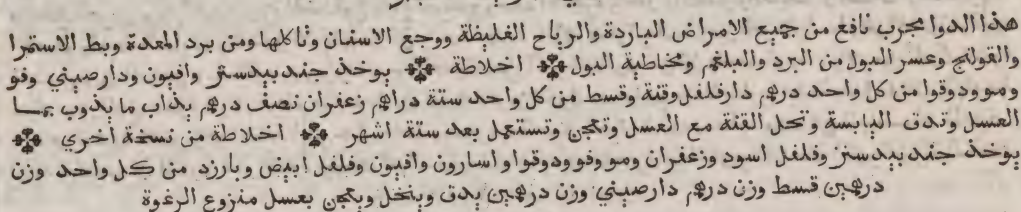 هذا الدوا مجرب نافع من جميع الامراض الباردة والرياح الغليظة ووجع الاسنان وتاكلها ومن برد المعدة وبط الاستمرا
والقولنج وعسر البول من البرد والبلغم ومخاطية البول اخلاطة يوخذ جندبيدستر وافيون ودارصيني وفو
ومو ودوقوا من كل واحد درهم دارفلفل وقنة وقسط من كل واحد ستة دراهم زعفران نصف درهم يذاب ما يذوب بما
العسل وتدق اليابسة وتحل القنة مع العسل وتعجن وتستعمل بعد ستة اشهر اخلاطة من نسخة اخري
يوخذ جندبيدستر وفلفل اسود وزعفران ومو وفو ودوقوا واسارون وافيون وفلفل ابيض وبارزد من كل واحد وزن
درهمين قسط وزن درهم دارصيني وزن درهمين يدق وينخل ويعجن بعسل منزوع الرغوة